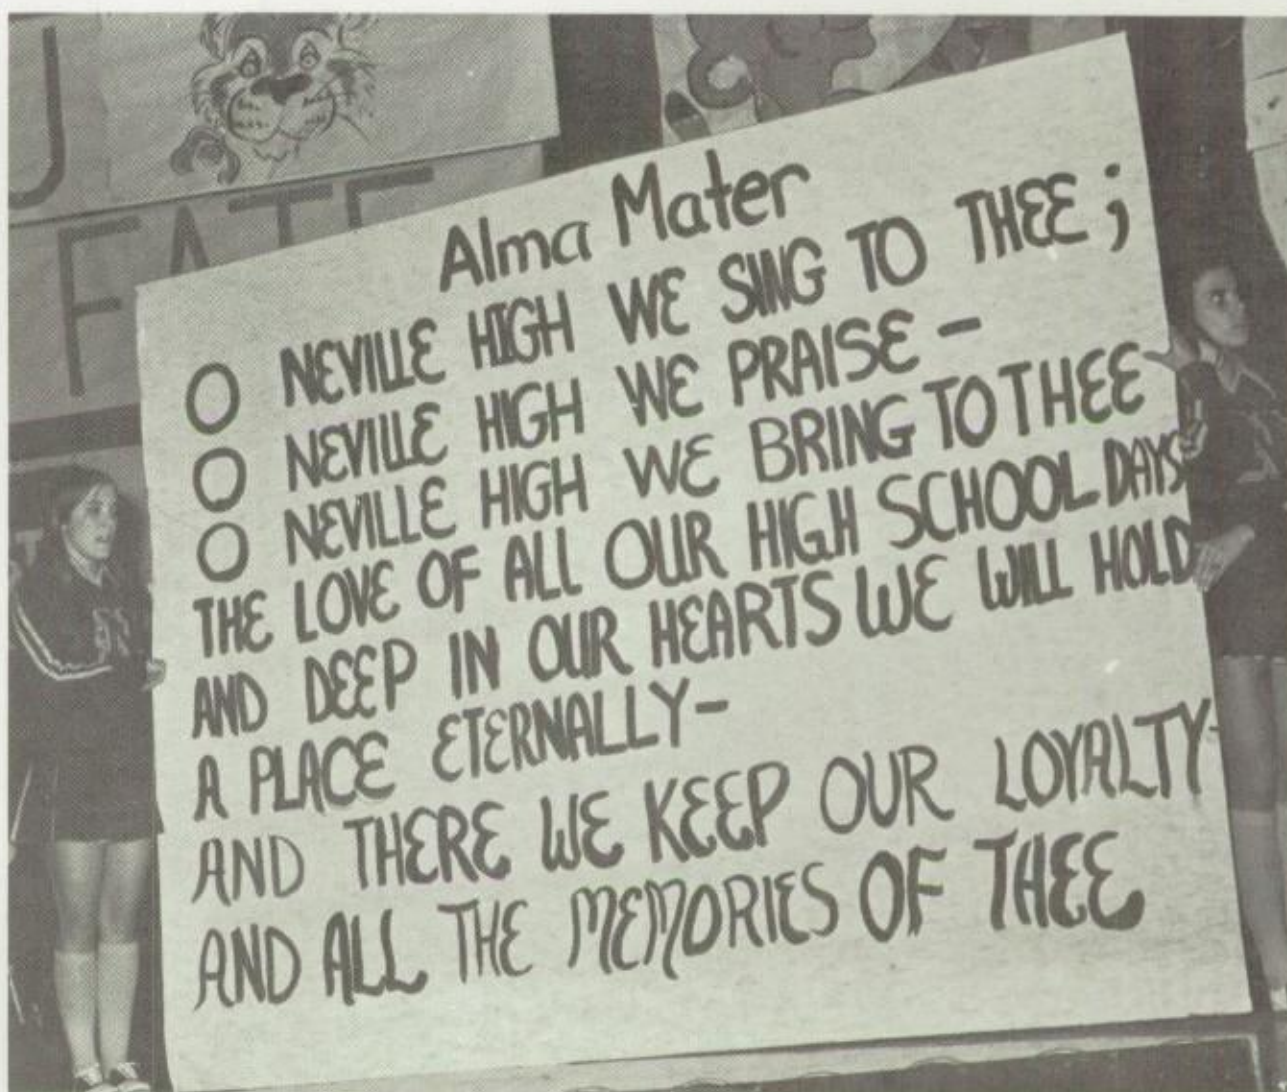 U
FATE
Alma Mater
O NEVILLE HIGH WE SING TO THEE;
O NEVILLE HIGH WE PRAISE -
O NEVILLE HIGH WE BRING TO THEE
THE LOVE OF ALL OUR HIGH SCHOOL DAYS
AND DEEP IN OUR HEARTS WE WILL HOLD
A PLACE ETERNALLY-
AND THERE WE KEEP OUR LOYALTY-
AND ALL THE MEMORIES OF THEE